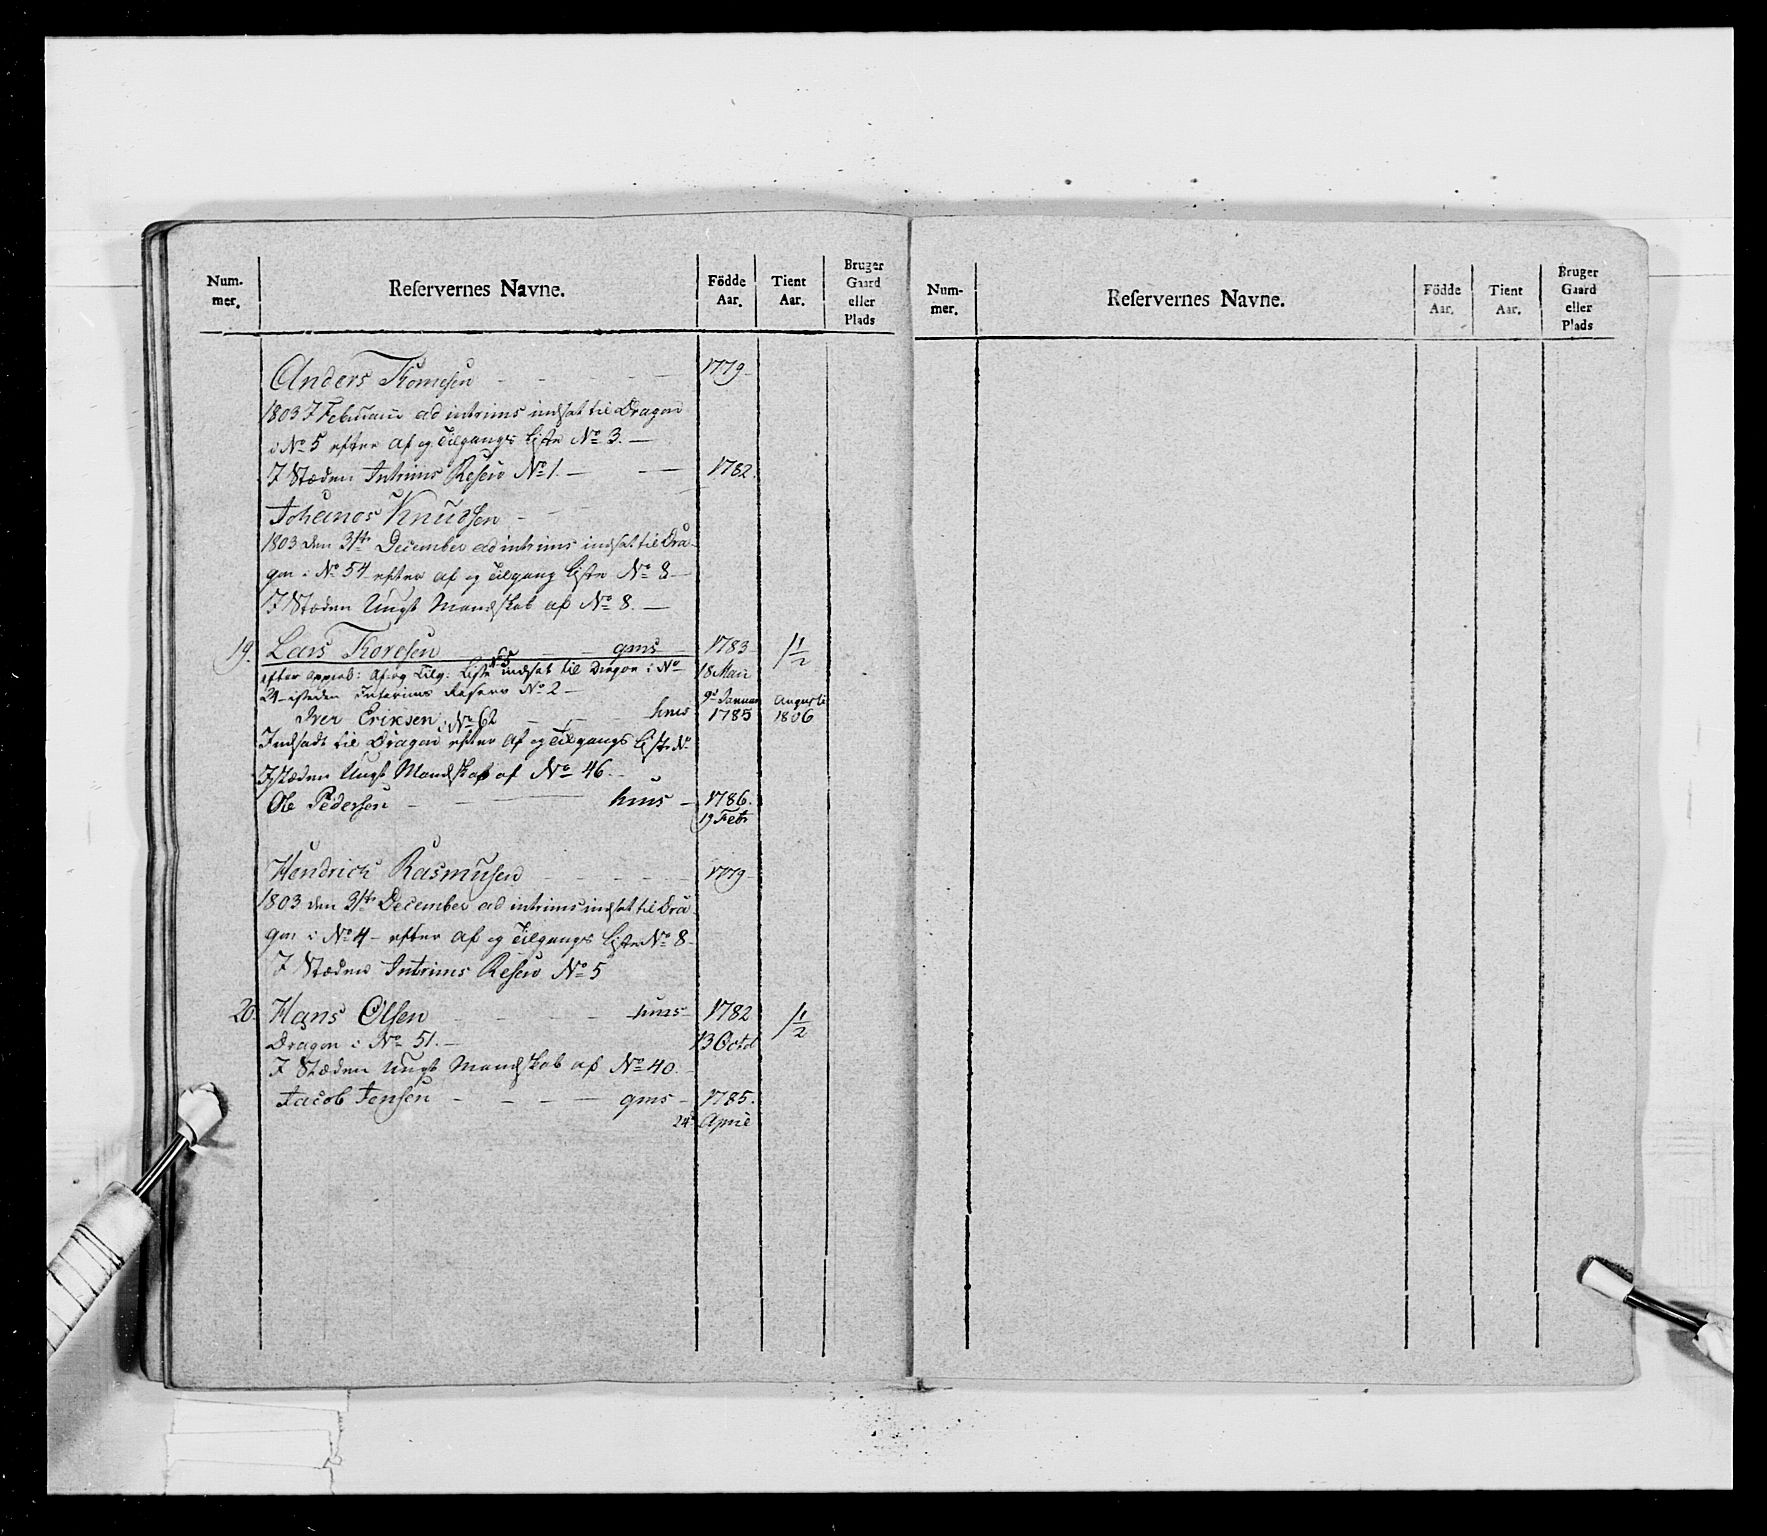 Num-
mer.
Reservernes Navne.
Födde
Aar.
Tient
Aar.
Bruger
Gaard
eller
Plads
Anders Thomesen 1779
1803 7 Februarii ad intrims indsat til Dragon
i No 5 efter Af og Tilgangs Liste No 3.
I Stæden Intrims Reserv No 1. 1782.
Johanes Knudsen
1803 den 31te December ad intrims indsat til Dra-
gon i No 54 efter af og Tilgang Liste No 8
I Stæden Ungt Mandskab af No 8.
19. Lars Thoresen gms 1783 1 1/2
efter approb: Af og Tilg: Liste indsat til Dragon i No 18 Maii
24 isteden Interims Reserv No 2
Iver Eriksen i No 62 hms 9d Januar 1785 Augusti 1806
Indsadt til Dragon efter Af og Tilgangs Liste No
I stæden Ungt Mandskab af No 46.
Ole Pedersen hms 1786.
19 Febr
Hendrich Rasmusen 1779
1803 den 31te December ad intrims indsat til Dra-
gon i No 4 efter Af og Tilgangs Liste No 8
I Stæden Intrims Reserv No 5
20. Hans Olsen hms 1782 1 1/2
Dragon i No 51. 13 Octb
I Stæden Ungt Mandskab af No 40.
Jacob Jensen gms 1785.
24d April
Num-
mer.
Reservernes Navne.
Födde
Aar.
Tient
Aar.
Bruger
Gaard
eller
Plads